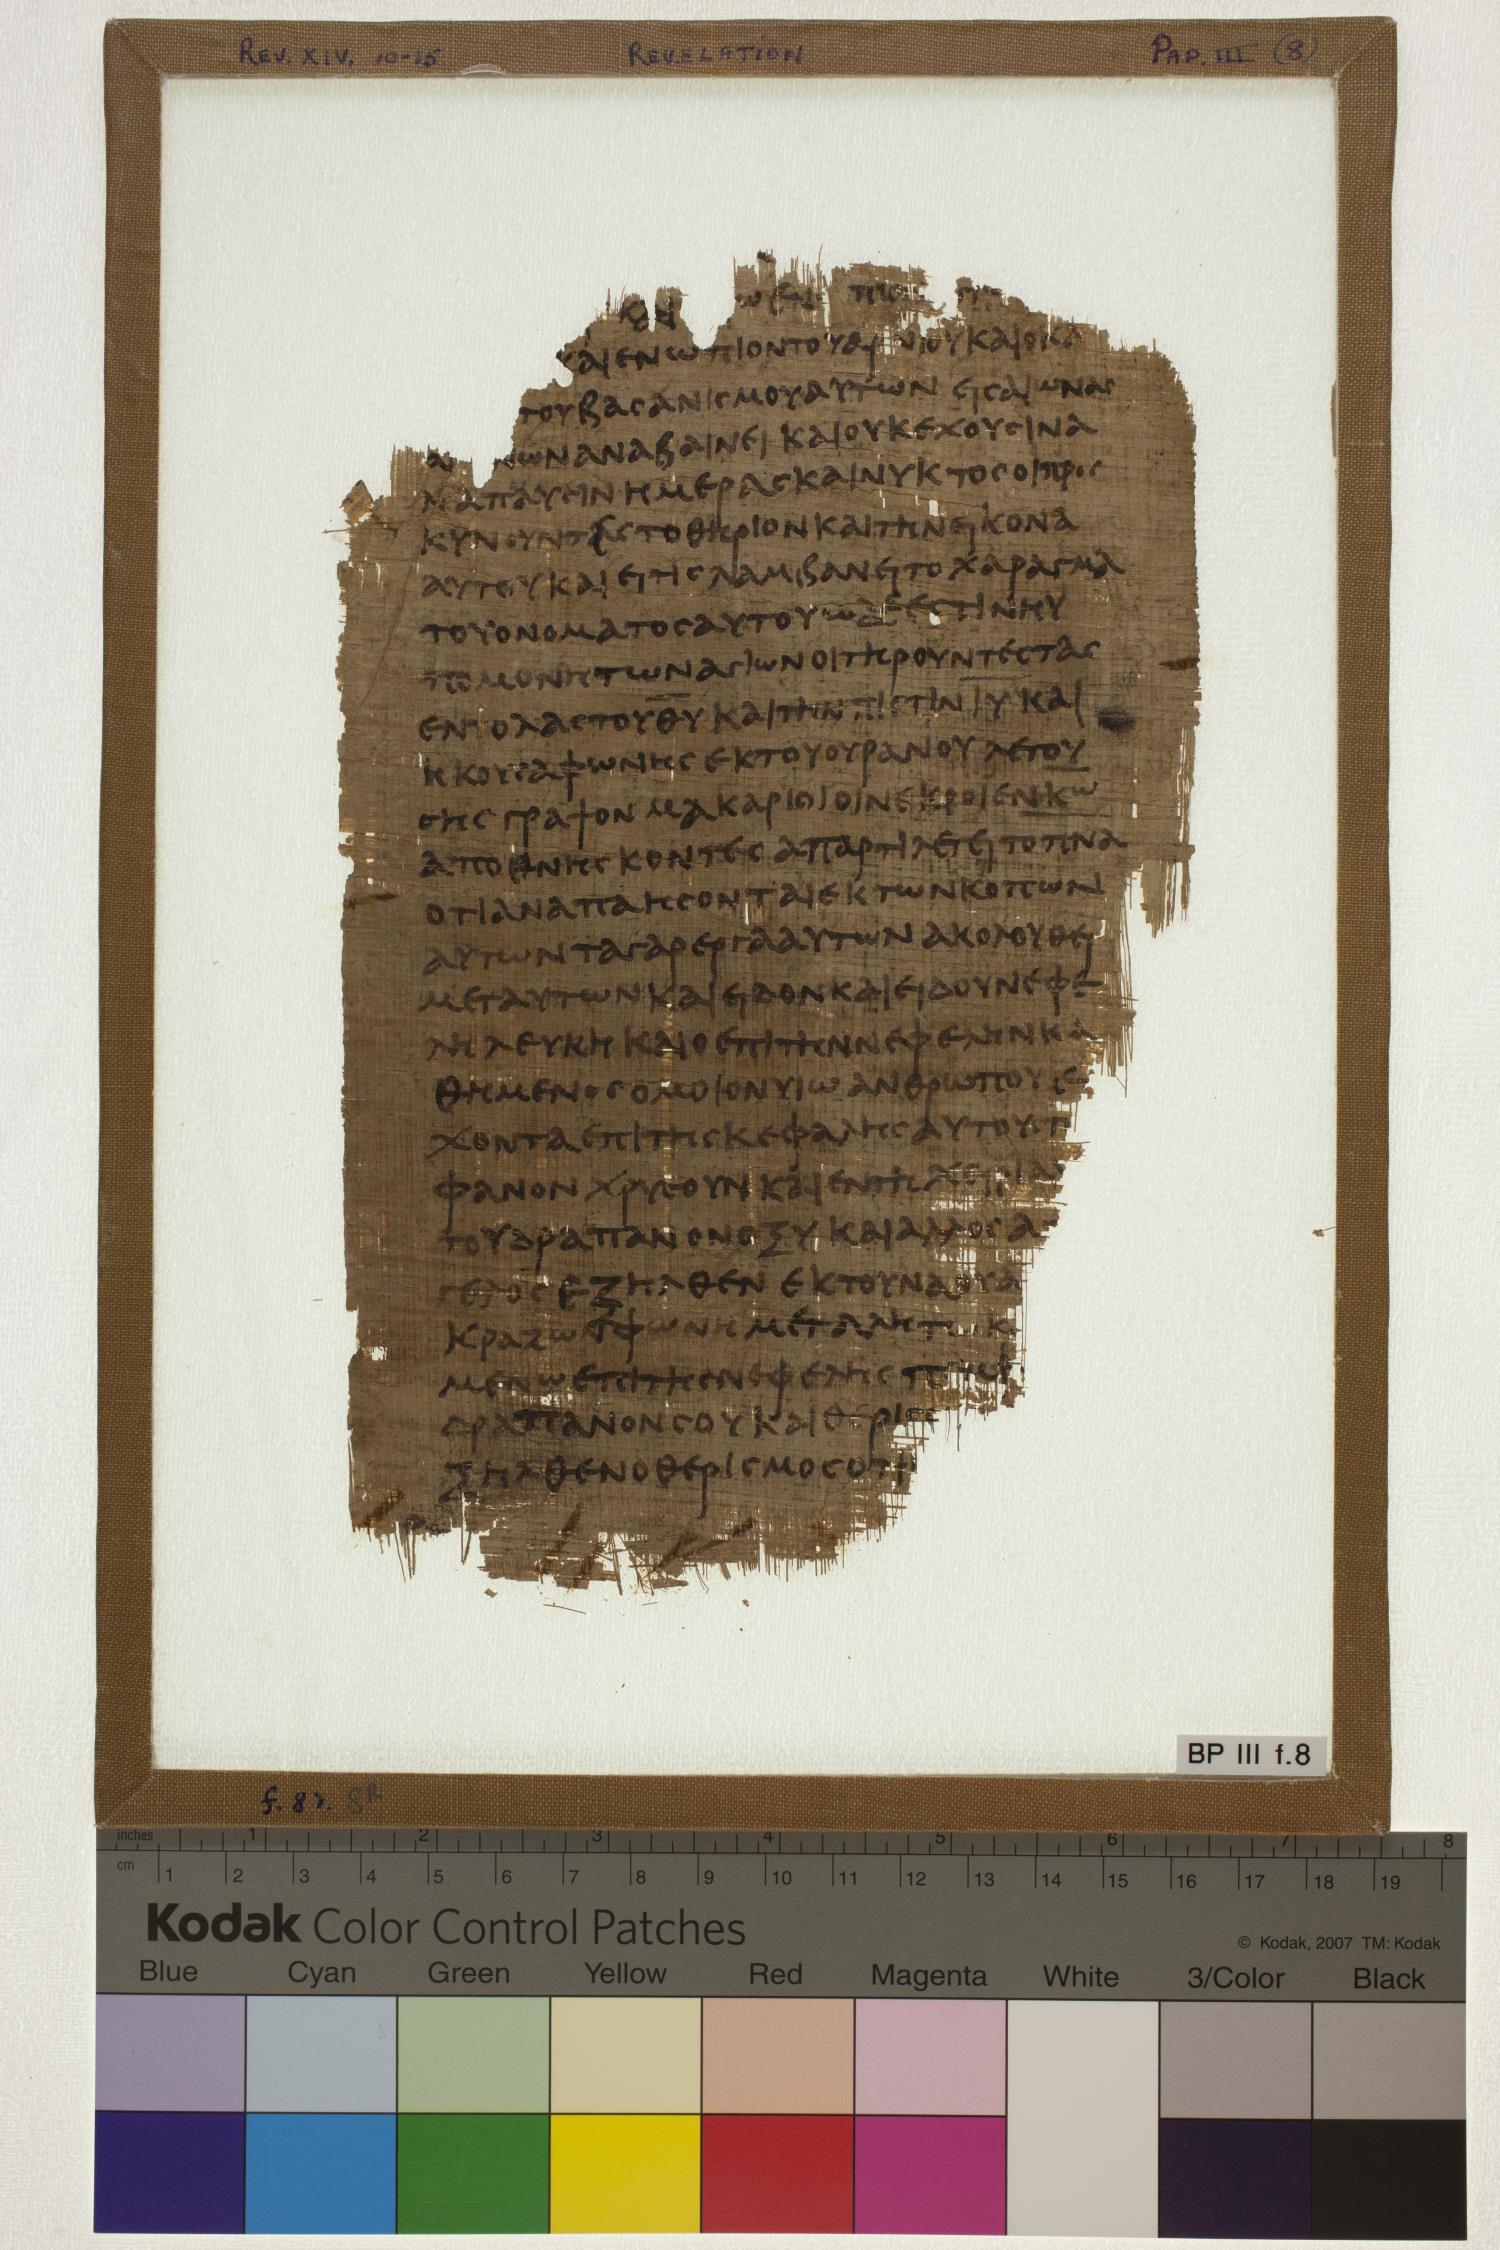 REV. XIV. 10-15 REVELATION PAP. III (8)
ΚΑΙ ΕΝΩΠΙΟΝ ΤΟΥ ΚΑΙ Ο ΚΑ
ΤΟΥ ΒΑΣΑΝΙΣΜΟΥ ΑΥΤΩΝ ΕΙΣ ΑΙΩΝΑΣ
ΑΝΑΒΑΙΝΕΙ ΚΑΙ ΟΥΚ ΕΧΟΥΣΙΝ Α
ΝΑΠΑΥΣΙΝ ΗΜΕΡΑΣ ΚΑΙ ΝΥΚΤΟΣ ΟΙ ΠΡΟΣ
ΚΥΝΟΥΝΤΕΣ ΤΟ ΘΗΡΙΟΝ ΚΑΙ ΤΗΝ ΕΙΚΟΝΑ
ΑΥΤΟΥ ΚΑΙ ΕΙ ΤΙΣ ΛΑΜΒΑΝΕΙ ΤΟ ΧΑΡΑΓΜΑ
ΤΟΥ ΟΝΟΜΑΤΟΣ ΑΥΤΟΥ ΩΔΕ ΕΣΤΙΝ Η Υ
ΠΟΜΟΝΗ ΤΩΝ ΑΓΙΩΝ ΟΙ ΤΗΡΟΥΝΤΕΣ ΤΑΣ
ΕΝΤΟΛΑΣ ΤΟΥ Θ̅Υ̅ ΚΑΙ ΤΗΝ ΠΙΣΤΙΝ Ι̅Υ̅ ΚΑΙ
ΗΚΟΥΣΑ ΦΩΝΗΣ ΕΚ ΤΟΥ ΟΥΡΑΝΟΥ ΛΕΓΟΥ
ΣΗΣ ΓΡΑΨΟΝ ΜΑΚΑΡΙΟΙ ΟΙ ΝΕΚΡΟΙ ΕΝ Κ̅Ω̅
ΑΠΟΘΝΗΣΚΟΝΤΕΣ ΑΠΑΡΤΙ ΛΕΓΕΙ ΤΟ Π̅Ν̅Α̅
ΟΤΙ ΑΝΑΠΑΗΣΟΝΤΑΙ ΕΚ ΤΩΝ ΚΟΠΩΝ
ΑΥΤΩΝ ΤΑ ΓΑΡ ΕΡΓΑ ΑΥΤΩΝ ΑΚΟΛΟΥΘΕΙ
ΜΕΤ ΑΥΤΩΝ ΚΑΙ ΕΙΔΟΝ ΚΑΙ ΕΙΔΟΥ ΝΕΦΕ
ΛΗ ΛΕΥΚΗ ΚΑΙ Ο ΕΠΙ ΤΗΝ ΝΕΦΕΛΗΝ ΚΑ
ΘΗΜΕΝΟΣ ΟΜΟΙΟΝ ΥΙΩ ΑΝΘΡΩΠΟΥ Ε
ΧΟΝΤΑ ΕΠΙ ΤΗΣ ΚΕΦΑΛΗΣ ΑΥΤΟΥ
ΦΑΝΟΝ ΧΡΥΣΟΥΝ ΚΑΙ ΕΝ ΤΗ ΧΕΙΡΙ ΑΥ
ΤΟΥ ΔΡΑΠΑΝΟΝ ΟΞΥ ΚΑΙ ΑΛΛΟΣ Α
ΓΕΛΟΣ ΕΞΗΛΘΕΝ ΕΚ ΤΟΥ ΝΑΟΥ Α
ΚΡΑΖΩΝ ΦΩΝΗ ΜΕΓΑΛΗ ΤΩ Κ
ΜΕΝΩ ΕΠΙ ΤΗΣ ΝΕΦΕΛΗΣ ΠΕΜΨ
ΔΡΑΠΑΝΟΝ ΣΟΥ ΚΑΙ ΘΕΡΙΣ
ΞΗΛΘΕΝ Ο ΘΕΡΙΣΜΟΣ ΟΤΙ
BP III f.8
f. 8r. 8R
inches 1 2 3 4 5 6 7 8
cm 1 2 3 4 5 6 7 8 9 10 11 12 13 14 15 16 17 18 19
Kodak Color Control Patches
© Kodak, 2007 TM: Kodak
Blue Cyan Green Yellow Red Magenta White 3/Color Black